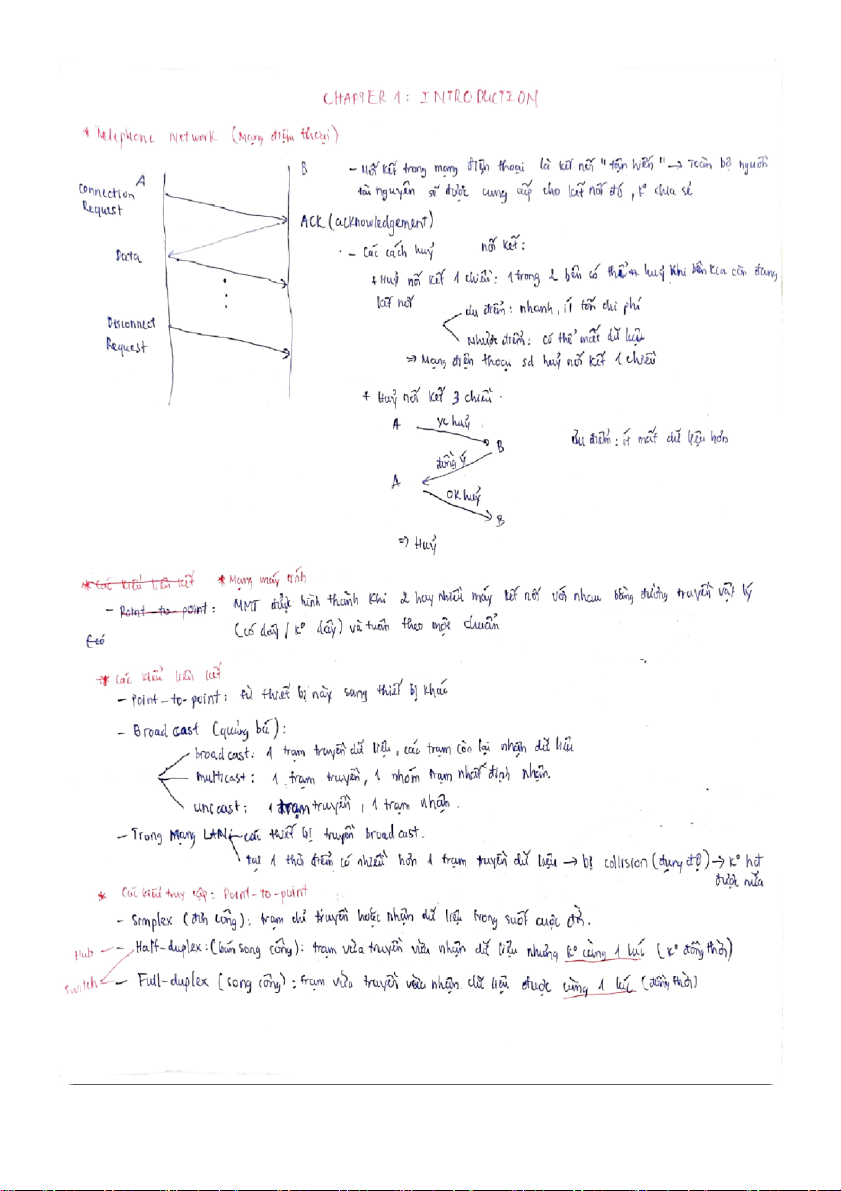 CHAPTER 1: INTRODUCTION
* Telephone Network (Mạng điện thoại)
A
Connection
Request
Data
Disconnect
Request
B
ACK (acknowledgement)
- Nối kết trong mạng điện thoại là kết nối "tận hiến" → Toàn bộ nguồn
tài nguyên sẽ được cung cấp cho kết nối đó, K° chia sẻ
- Các cách huỷ nối kết:
+ Huỷ nối kết 1 chiều: 1 trong 2 bên có thể huỷ khi bên kia còn đang
kết nối
ưu điểm: nhanh, ít tốn chi phí
Nhược điểm: có thể mất dữ liệu
=> Mạng điện thoại sd huỷ nối kết 1 chiều
+ Huỷ nối kết 3 chiều.
A yc huỷ B
đồng ý
A OK huỷ B
ưu điểm: ít mất dữ liệu hơn
=> Huỷ
* Các kiểu liên kết * Mạng máy tính
- Point-to-point: MMT được hình thành khi 2 hay nhiều máy kết nối với nhau bằng đường truyền vật lý
(có dây / K° dây) và tuân theo một chuẩn
* Các kiểu liên kết
- Point-to-point: từ thiết bị này sang thiết bị khác
- Broadcast (quảng bá):
broadcast: 1 trạm truyền dữ liệu, các trạm còn lại nhận dữ liệu
multicast: 1 trạm truyền, 1 nhóm trạm nhất định nhận.
unicast: 1 trạm truyền, 1 trạm nhận.
- Trong Mạng LAN các thiết bị truyền broadcast.
tại 1 thời điểm có nhiều hơn 1 trạm truyền dữ liệu → bị collision (đụng độ) → K°
được nữa
* Các kiểu truy cập: Point-to-point
- Simplex (đơn công): trạm chỉ truyền hoặc nhận dữ liệu trong suốt cuộc
Hub - Half-duplex: (bán song công): trạm vừa truyền vừa nhận dữ liệu nhưng K° cùng 1 lúc (K° đồng thời)
Switch - Full-duplex (song công): trạm vừa truyền vừa nhận dữ liệu được cùng 1 lúc (đồng thời)